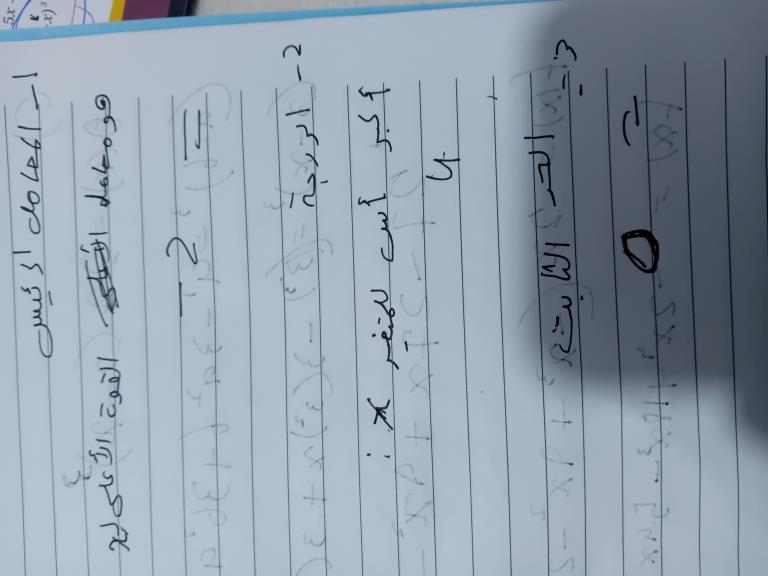 1- المعامل الرئيس
هو معامل القوة الأعلى لـ x
= -2
2- الدرجة
أكبر أس للمتغير x :
4
3- الحد الثابت
= 0